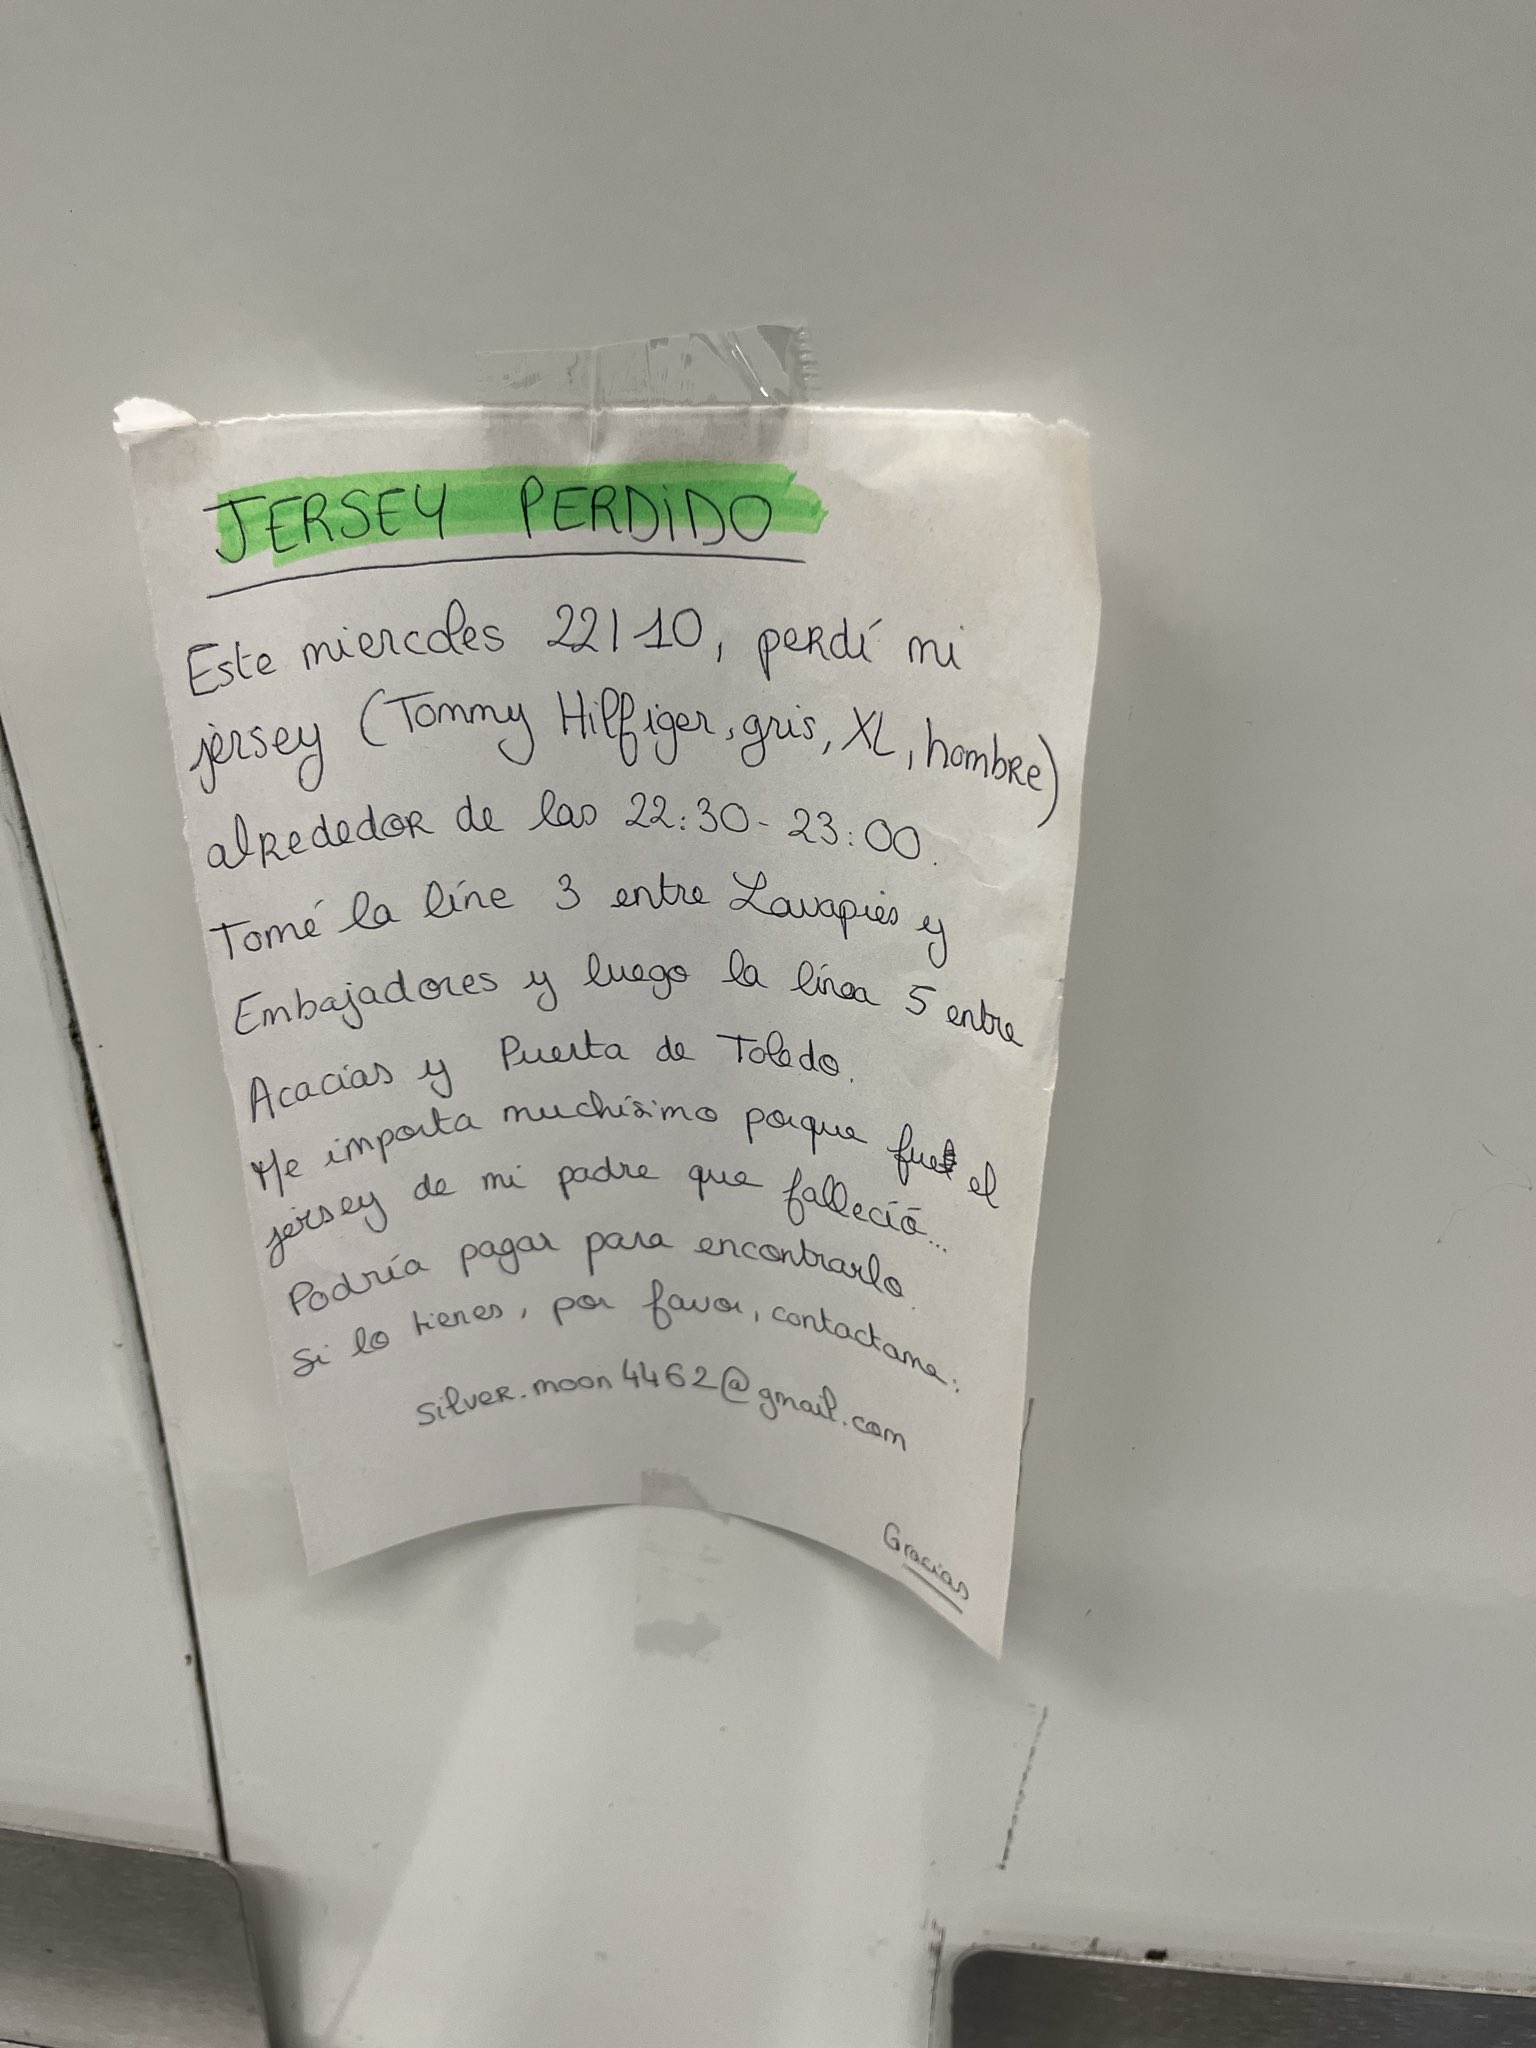 JERSEY PERDIDO
Este miercoles 22/10, perdí mi
jersey (Tommy Hilfiger, gris, XL, hombre)
alrededor de las 22:30 - 23:00.
Tomé la líne 3 entre Lavapiés y
Embajadores y luego la línea 5 entre
Acacias y Puerta de Toledo.
Me importa muchísimo porque fue el
jersey de mi padre que falleció...
Podría pagar para encontrarlo.
Si lo tienes, por favor, contactame:
silver.moon4462@gmail.com
Gracias